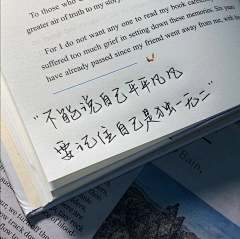 To those who
greater air of truth to my story.
For I do not want any one to read my book carelessly. I have
suffered too much grief in setting down these memories. Six years
have already passed since my friend went away from me, with his
"不能说自己平平凡凡
要记住自己是独一无二"
Bain,